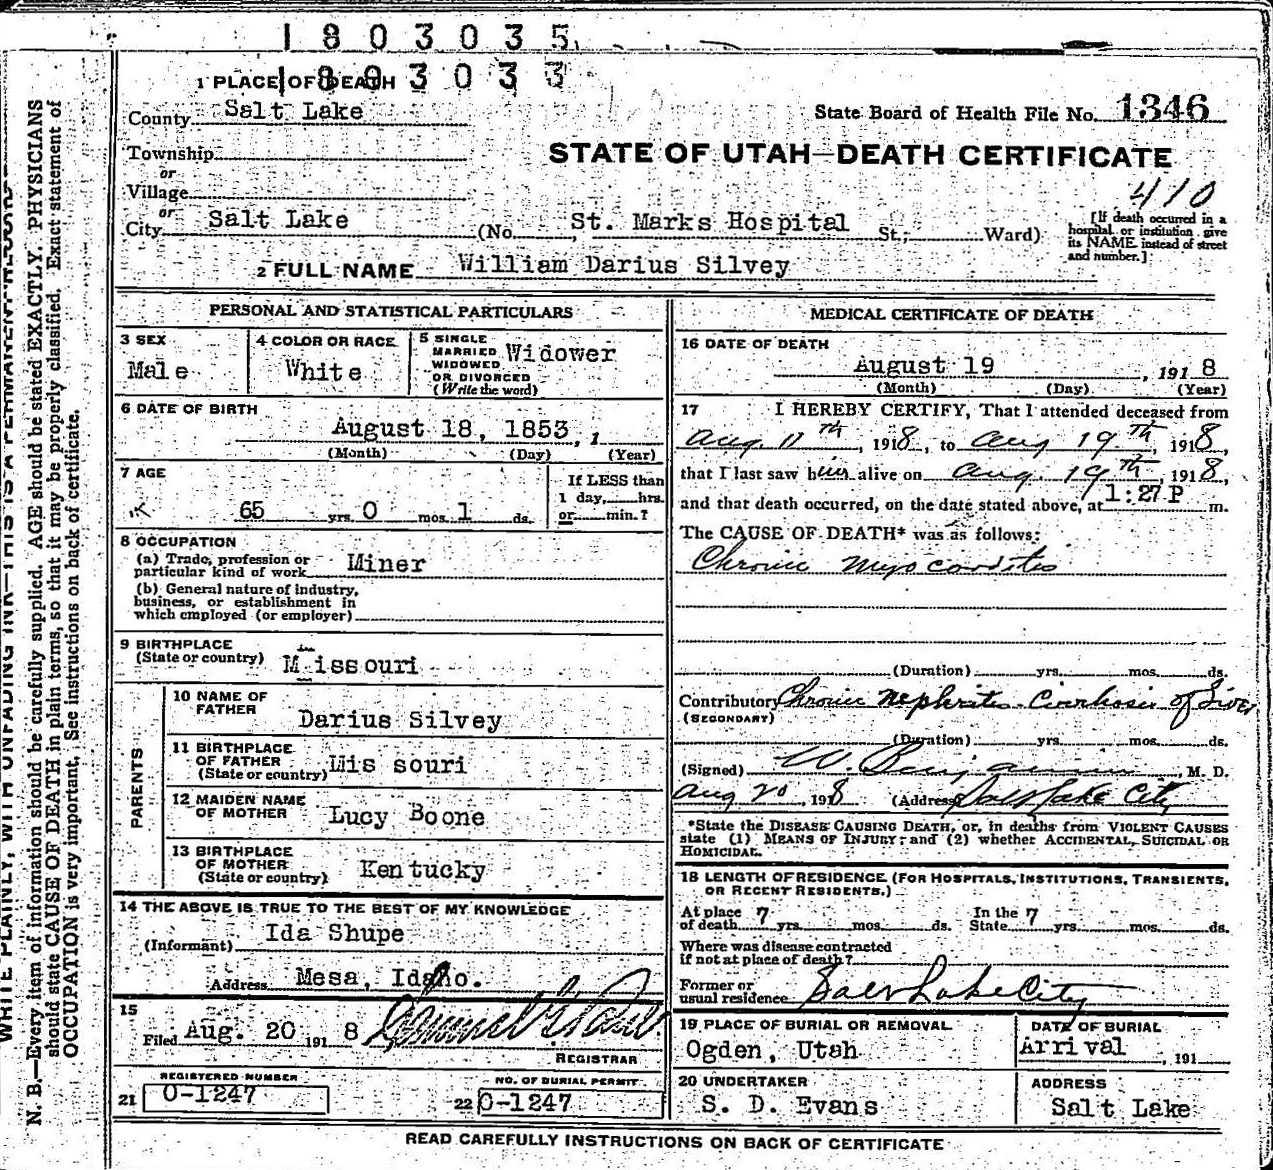 1803035
1 PLACE OF DEATH 1803033
County Salt Lake
State Board of Health File No. 1346
Township
STATE OF UTAH—DEATH CERTIFICATE
or
Village
410
or
City Salt Lake (No. St. Marks Hospital St.; Ward)
[If death occurred in a
hospital or institution give
its NAME instead of street
and number.]
2 FULL NAME William Darius Silvey
PERSONAL AND STATISTICAL PARTICULARS
3 SEX
Male
4 COLOR OR RACE
White
5 SINGLE
MARRIED
WIDOWED
OR DIVORCED
(Write the word)
Widower
6 DATE OF BIRTH
August 18, 1853, 1
(Month) (Day) (Year)
7 AGE
65 yrs. 0 mos. 1 ds.
If LESS than
1 day, hrs.
or min.?
8 OCCUPATION
(a) Trade, profession or
particular kind of work Miner
(b) General nature of industry,
business, or establishment in
which employed (or employer)
9 BIRTHPLACE
(State or country) Missouri
PARENTS
10 NAME OF
FATHER
Darius Silvey
11 BIRTHPLACE
OF FATHER
(State or country) Mis souri
12 MAIDEN NAME
OF MOTHER Lucy Boone
13 BIRTHPLACE
OF MOTHER
(State or country) Kentucky
14 THE ABOVE IS TRUE TO THE BEST OF MY KNOWLEDGE
(Informant) Ida Shupe
Address Mesa, Idaho.
15
Filed Aug. 20 191 8
REGISTRAR
REGISTERED NUMBER
21 O-1247
NO. OF BURIAL PERMIT
22 O-1247
MEDICAL CERTIFICATE OF DEATH
16 DATE OF DEATH
August 19, 191 8
(Month) (Day) (Year)
17 I HEREBY CERTIFY, That I attended deceased from
Aug. 11th, 1918, to Aug 19th, 1918,
that I last saw him alive on Aug. 19th, 1918,
and that death occurred, on the date stated above, at 1:27 P m.
The CAUSE OF DEATH* was as follows:
Chronic Myocarditis
(Duration) yrs. mos. ds.
Contributory Chronic Nephritis Cirrhosis of Liver
(SECONDARY)
(Duration) yrs. mos. ds.
(Signed) W. Benjamin, M. D.
Aug 20, 1918 (Address) Salt Lake City
*State the DISEASE CAUSING DEATH, or, in deaths from VIOLENT CAUSES
state (1) MEANS OF INJURY; and (2) whether ACCIDENTAL, SUICIDAL OR
HOMICIDAL.
18 LENGTH OF RESIDENCE (FOR HOSPITALS, INSTITUTIONS, TRANSIENTS,
OR RECENT RESIDENTS.)
At place
of death 7 yrs. mos. ds.
In the
State 7 yrs. mos. ds.
Where was disease contracted
if not at place of death?
Former or
usual residence Salt Lake City
19 PLACE OF BURIAL OR REMOVAL
Ogden, Utah
DATE OF BURIAL
Arrival, 191
20 UNDERTAKER
S. D. Evans
ADDRESS
Salt Lake
READ CAREFULLY INSTRUCTIONS ON BACK OF CERTIFICATE
WRITE PLAINLY, WITH UNFADING INK—THIS IS A PERMANENT RECORD
N. B.—Every item of information should be carefully supplied. AGE should be stated EXACTLY. PHYSICIANS
should state CAUSE OF DEATH in plain terms, so that it may be properly classified. Exact statement of
OCCUPATION is very important. See instructions on back of certificate.